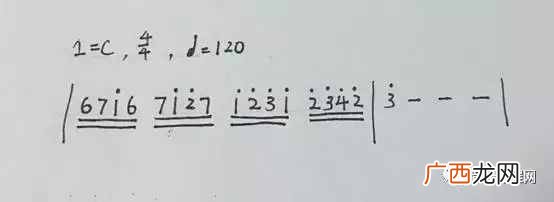 1=C, 4/4, ♩=120
| 671̇6 71̇2̇7 1̇2̇3̇1̇ 2̇3̇4̇2̇ | 3̇ – – – |
广西龙网